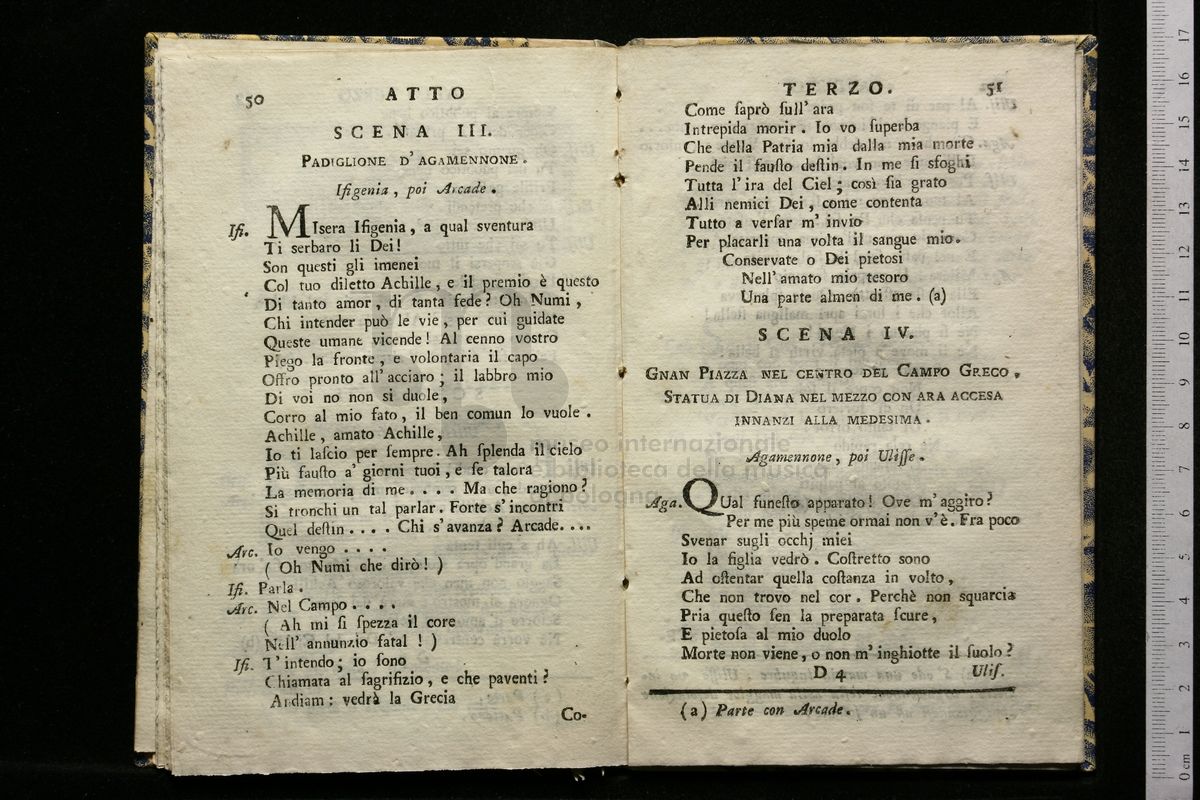 50
ATTO
SCENA III.
PADIGLIONE D'AGAMENNONE.
Ifigenia, poi Arcade.
Ifi. MIsera Ifigenia, a qual sventura
Ti serbaro li Dei!
Son questi gli imenei
Col tuo diletto Achille, e il premio è questo
Di tanto amor, di tanta fede? Oh Numi,
Chi intender può le vie, per cui guidate
Queste umane vicende! Al cenno vostro
Piego la fronte, e volontaria il capo
Offro pronto all'acciaro; il labbro mio
Di voi no non si duole,
Corro al mio fato, il ben comun lo vuole.
Achille, amato Achille,
Io ti laſcio per ſempre. Ah ſplenda il cielo
Più fauſto a' giorni tuoi, e ſe talora
La memoria di me.... Ma che ragiono?
Si tronchi un tal parlar. Forte s'incontri
Quel deſtin.... Chi s'avanza? Arcade....
Arc. Io vengo....
(Oh Numi che dirò!)
Ifi. Parla.
Arc. Nel Campo....
(Ah mi ſi ſpezza il core
Nell'annunzio fatal!)
Ifi. T'intendo; io ſono
Chiamata al ſagrifizio, e che paventi?
Andiam: vedrà la Grecia
Co-
TERZO.
51
Come ſaprò ſull'ara
Intrepida morir. Io vo ſuperba
Che della Patria mia dalla mia morte
Pende il fauſto deſtin. In me ſi sfoghi
Tutta l'ira del Ciel; così ſia grato
Alli nemici Dei, come contenta
Tutto a verſar m'invio
Per placarli una volta il sangue mio.
Conservate o Dei pietosi
Nell'amato mio tesoro
Una parte almen di me. (a)
SCENA IV.
GNAN PIAZZA NEL CENTRO DEL CAMPO GRECO,
STATUA DI DIANA NEL MEZZO CON ARA ACCESA
INNANZI ALLA MEDESIMA.
Agamennone, poi Uliſſe.
Aga. QUal funeſto apparato! Ove m'aggiro?
Per me più speme ormai non v'è. Fra poco
Svenar sugli occhj miei
Io la figlia vedrò. Coſtretto sono
Ad oſtentar quella coſtanza in volto,
Che non trovo nel cor. Perchè non squarcia
Pria queſto ſen la preparata ſcure,
E pietoſa al mio duolo
Morte non viene, o non m'inghiotte il ſuolo?
D 4
Uliſ.
(a) Parte con Arcade.
museo internazionale
e biblioteca della musica
di bologna